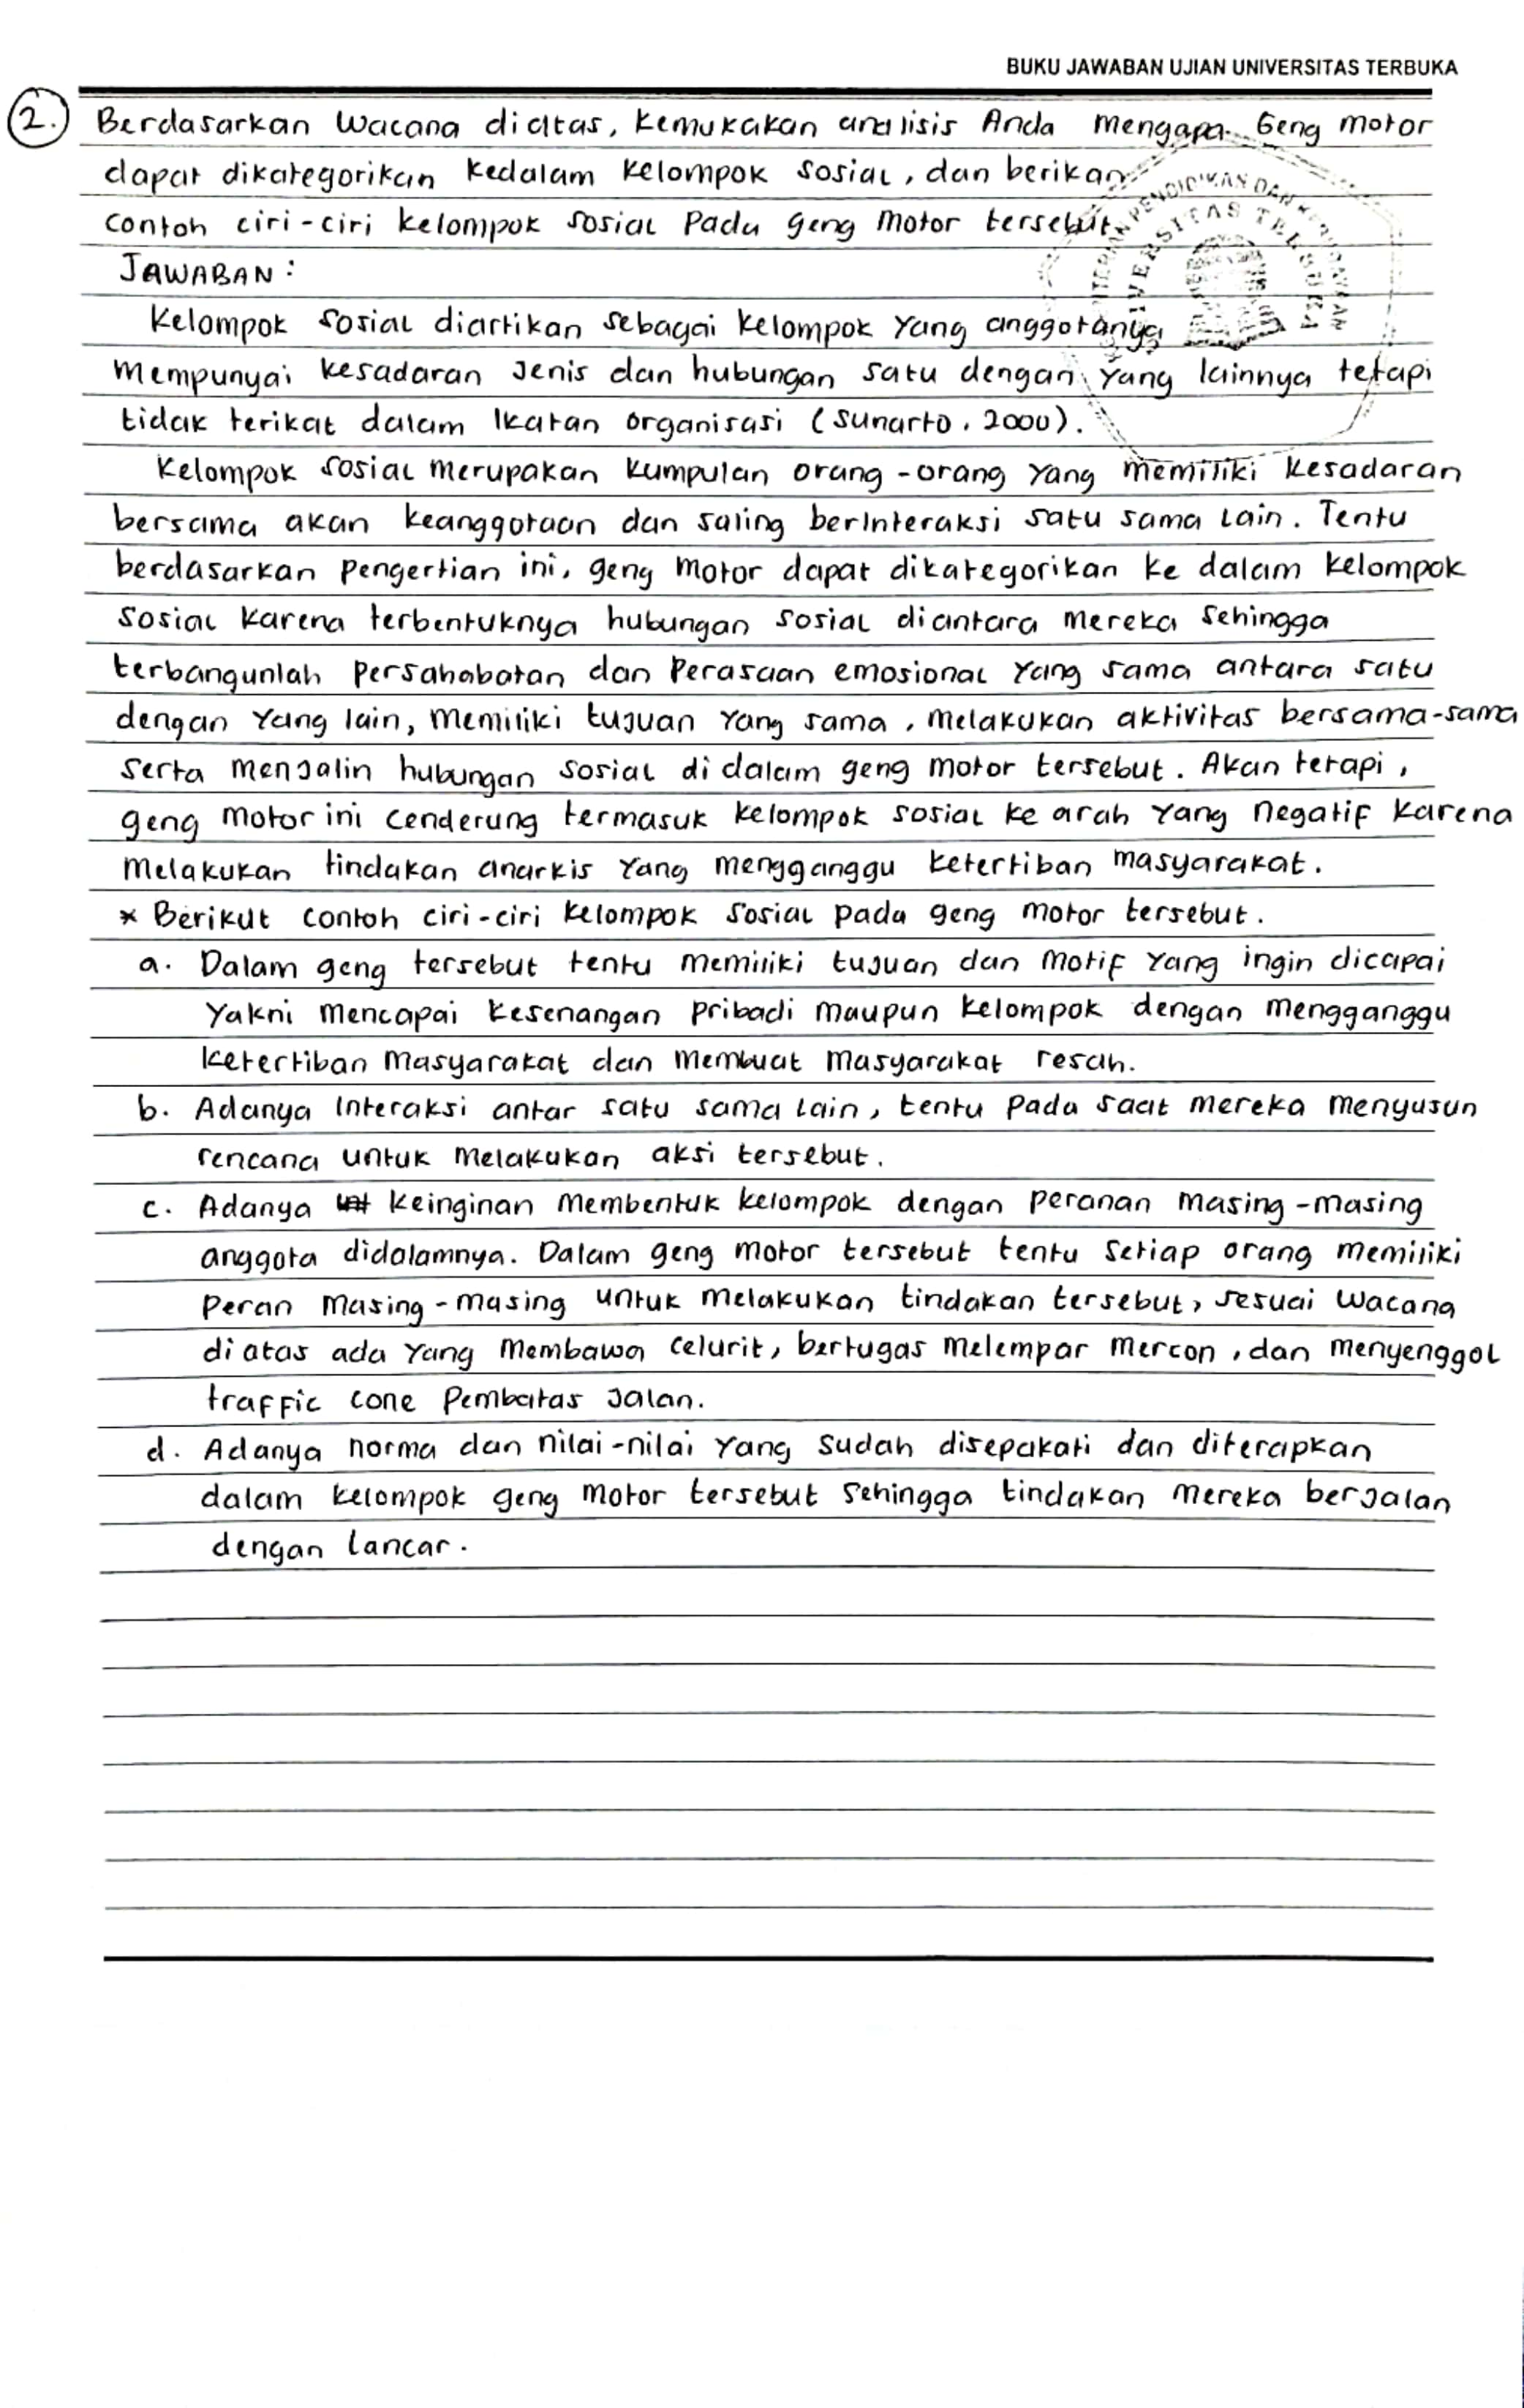 BUKU JAWABAN UJIAN UNIVERSITAS TERBUKA
2. Berdasarkan Wacana diatas, kemukakan analisis Anda mengapa Geng motor
dapat dikategorikan kedalam kelompok sosial, dan berikan
contoh ciri-ciri kelompok sosial pada geng motor tersebut.
JAWABAN :
Kelompok sosial diartikan sebagai kelompok yang anggotanya
mempunyai kesadaran jenis dan hubungan satu dengan yang lainnya tetapi
tidak terikat dalam ikatan organisasi (Sunarto, 2000).
Kelompok sosial merupakan kumpulan orang-orang yang memiliki kesadaran
bersama akan keanggotaan dan saling berinteraksi satu sama lain. Tentu
berdasarkan pengertian ini, geng motor dapat dikategorikan ke dalam kelompok
sosial karena terbentuknya hubungan sosial diantara mereka sehingga
terbangunlah persahabatan dan perasaan emosional yang sama antara satu
dengan yang lain, memiliki tujuan yang sama, melakukan aktivitas bersama-sama
serta menjalin hubungan sosial di dalam geng motor tersebut. Akan tetapi,
geng motor ini cenderung termasuk kelompok sosial ke arah yang negatif karena
melakukan tindakan anarkis yang mengganggu ketertiban masyarakat.
* Berikut contoh ciri-ciri kelompok sosial pada geng motor tersebut.
a. Dalam geng tersebut tentu memiliki tujuan dan motif yang ingin dicapai
yakni mencapai kesenangan pribadi maupun kelompok dengan mengganggu
ketertiban masyarakat dan membuat masyarakat resah.
b. Adanya interaksi antar satu sama lain, tentu pada saat mereka menyusun
rencana untuk melakukan aksi tersebut.
c. Adanya keinginan membentuk kelompok dengan peranan masing-masing
anggota didalamnya. Dalam geng motor tersebut tentu setiap orang memiliki
peran masing-masing untuk melakukan tindakan tersebut, sesuai wacana
di atas ada yang membawa celurit, bertugas melempar mercon, dan menyenggol
traffic cone pembatas jalan.
d. Adanya norma dan nilai-nilai yang sudah disepakati dan diterapkan
dalam kelompok geng motor tersebut sehingga tindakan mereka berjalan
dengan lancar.